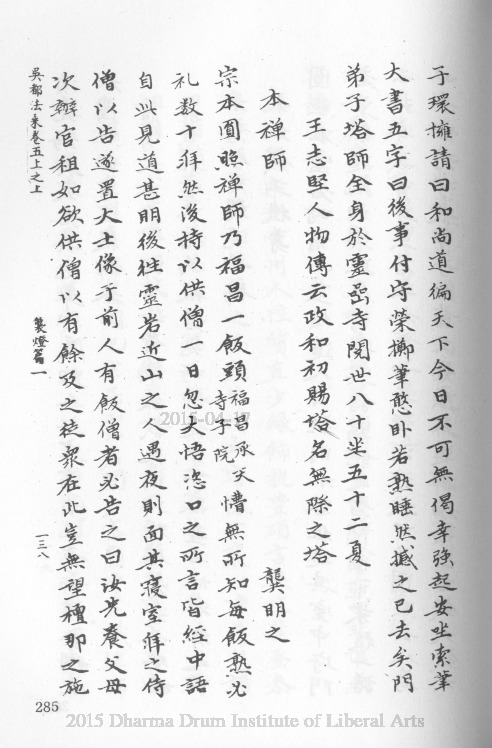 子環擁請曰和尚道徧天下今日不可無偈幸強起安坐索筆
大書五字曰後事付守榮擲筆憨臥若熟睡然撼之已去矣門
弟子塔師全身於靈嵒寺閱世八十坐五十二夏
王志堅人物傳云政和初賜塔名無際之塔
本禪師　龔明之
宗本圓照禪師乃福昌一飯頭福昌承天寺子院懵無所知每飯熟必
礼数十拜然後持以供僧一日忽大悟恣口之所言皆經中語
自此見道甚明後往靈岩近山之人遇夜則面其寢室拜之侍
僧以告遂置大士像于前人有飯僧者必告之曰汝先養父母
次辦官租如欲供僧以有餘及之徒衆在此豈無望檀那之施
吳都法乘卷五上之上
襲燈篇一
一三八
285
2015-04-17
2015 Dharma Drum Institute of Liberal Arts